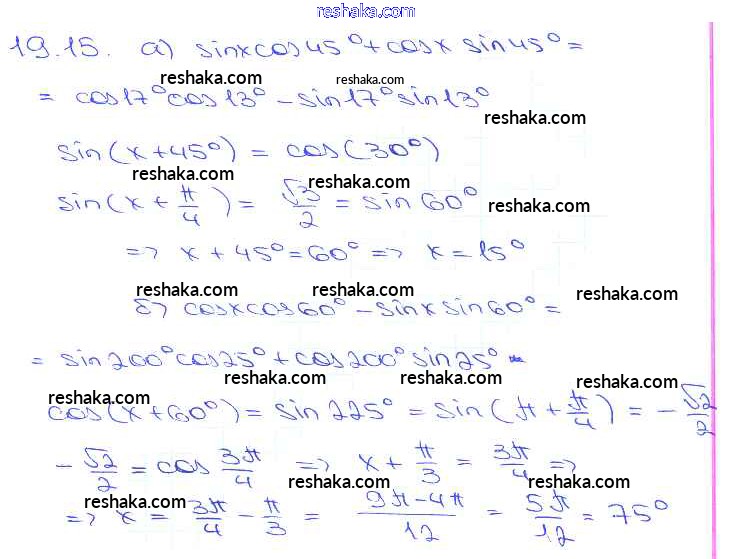 reshaka.com
19.15. а) sinxcos45°+cosx sin45°=
reshaka.com reshaka.com
= cos17°cos13° - sin17°sin13°
reshaka.com
sin(x+45°) = cos(30°)
reshaka.com reshaka.com
sin(x + π/4) = √3/2 = sin60°
reshaka.com
=> x + 45° = 60° => x = 15°
reshaka.com reshaka.com reshaka.com
б) cosxcos60° - sinxsin60° =
= sin200°cos25° + cos200°sin25°
reshaka.com reshaka.com reshaka.com
reshaka.com
cos(x+60°) = sin225° = sin(π + π/4) = -√2/2
-√2/2 = cos 3π/4 => x + π/3 = 3π/4 =>
reshaka.com reshaka.com reshaka.com
=> x = 3π/4 - π/3 = 9π-4π/12 = 5π/12 = 75°